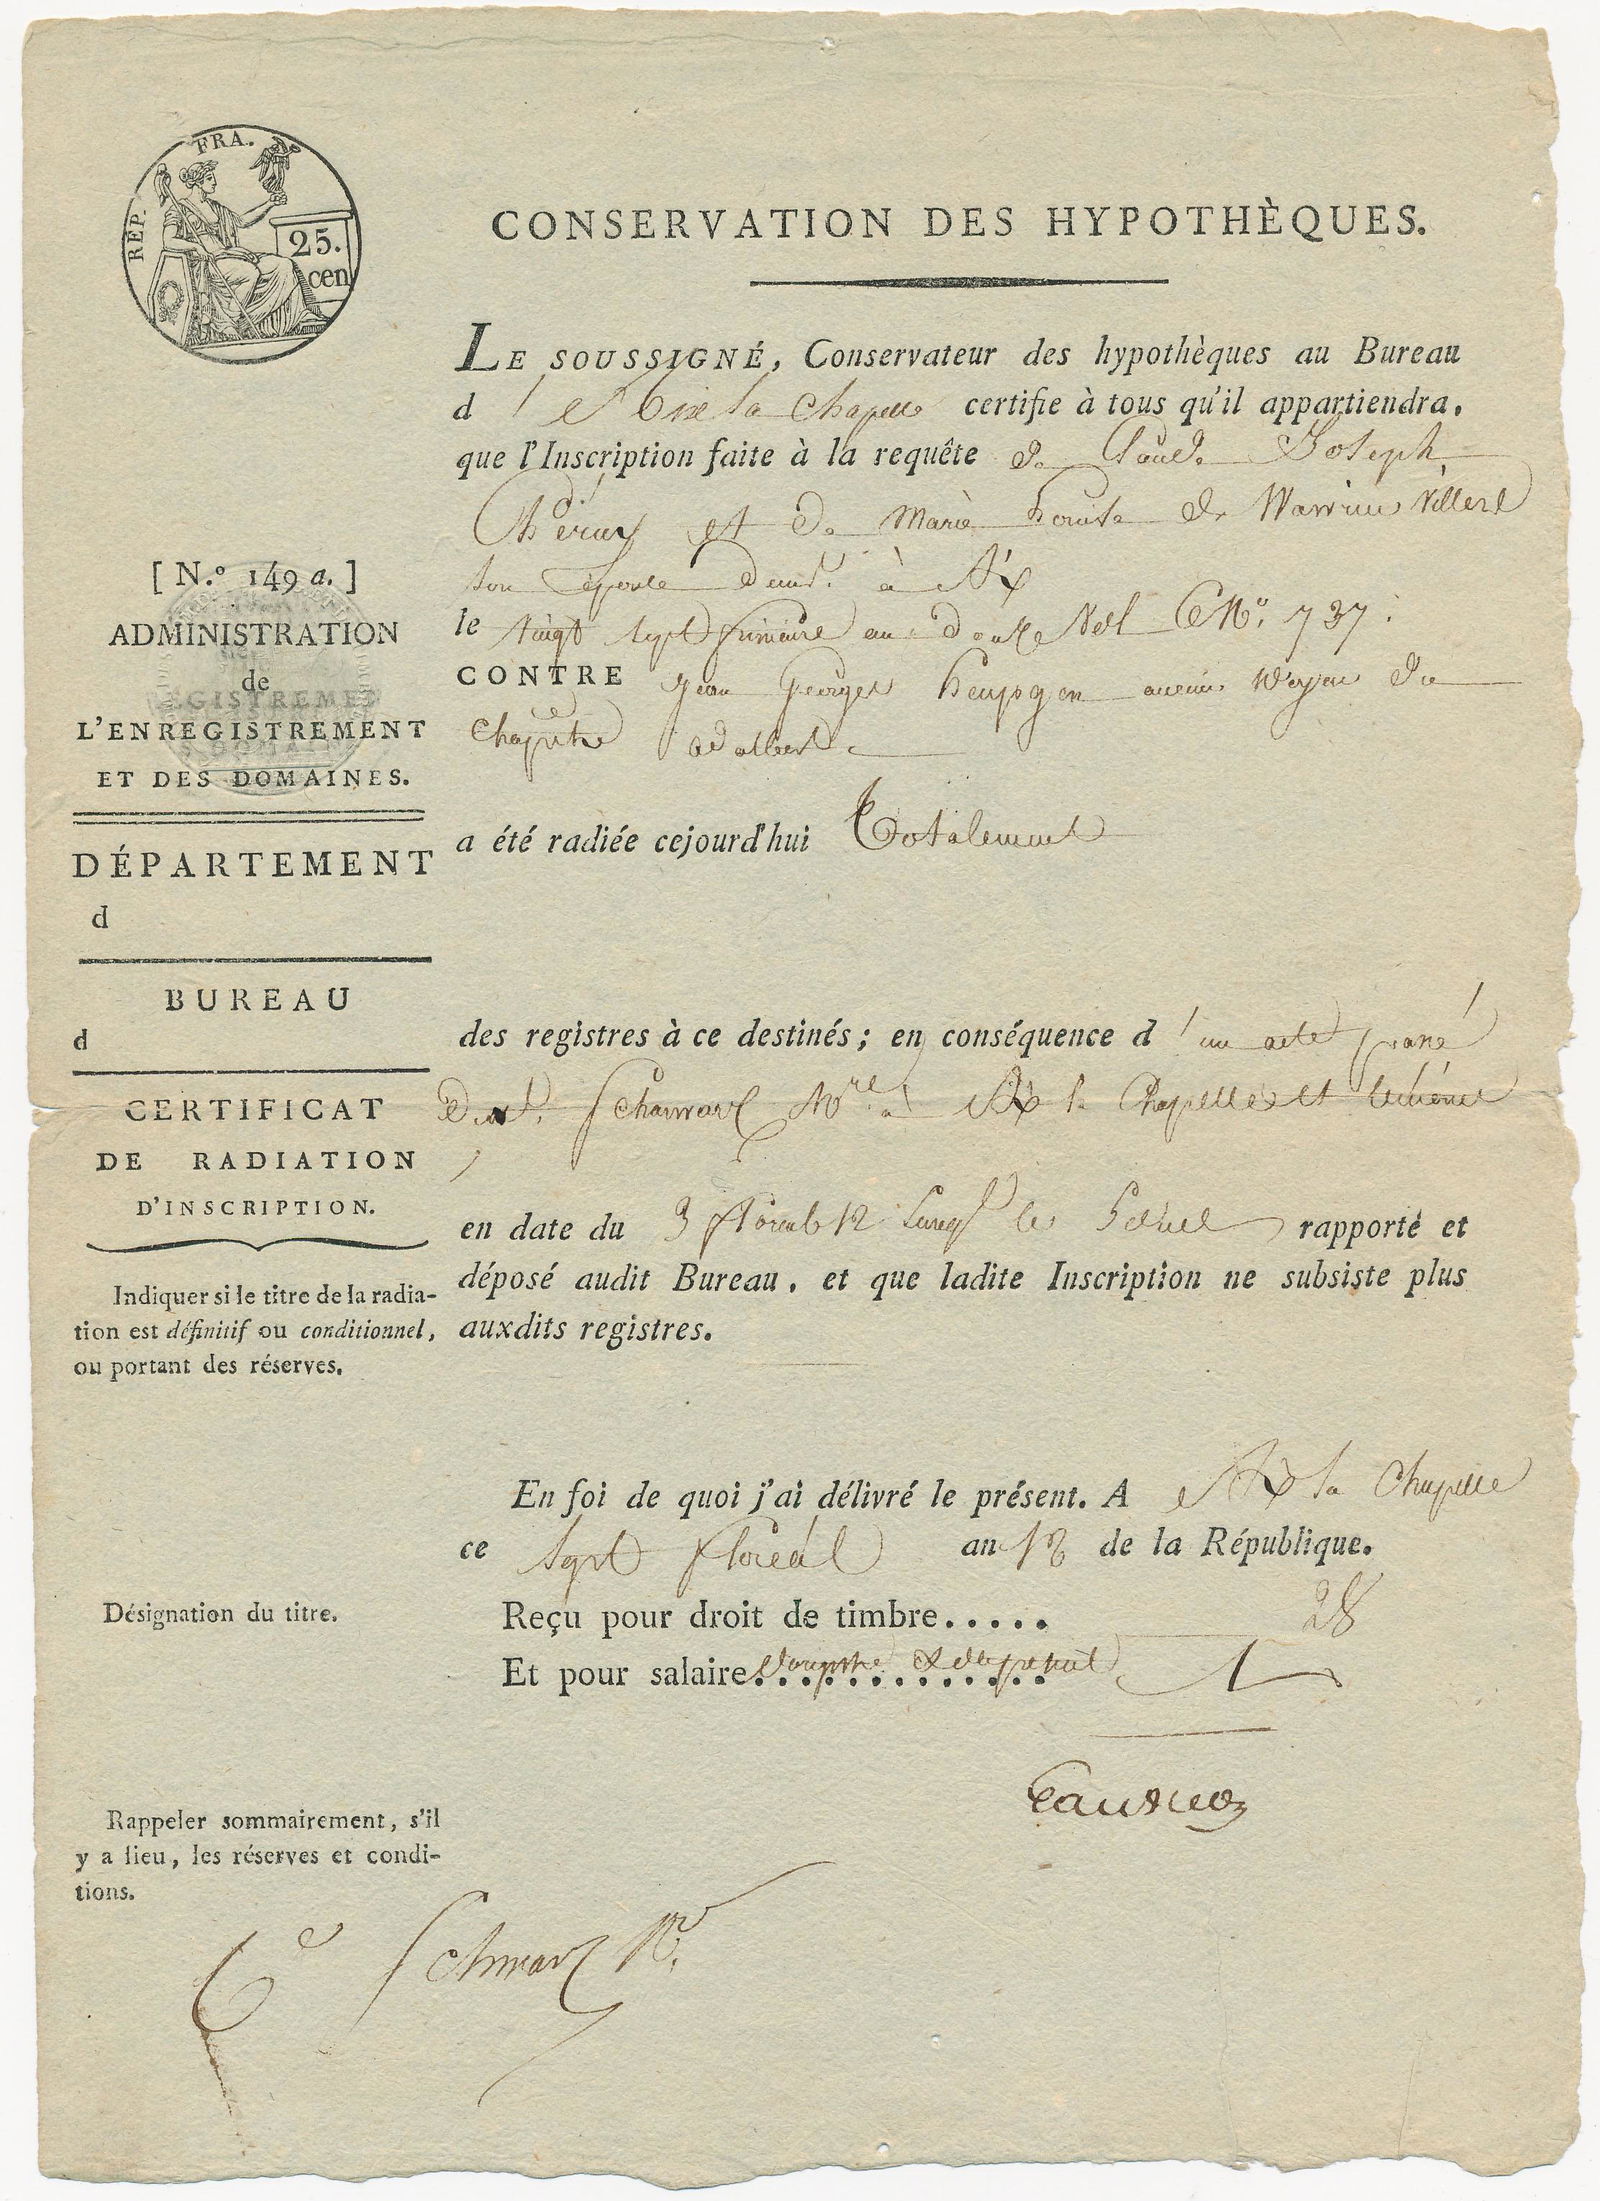 REP. FRA.
25.
cen
CONSERVATION DES HYPOTHÈQUES.
LE SOUSSIGNÉ, Conservateur des hypothèques au Bureau
d' Aix la Chapelle certifie à tous qu'il appartiendra,
que l'Inscription faite à la requête de Claude Joseph
et de Marie Louise de
son épouse à Aix
le vingt sept frimaire an douze Vol 6 N.o 737.
CONTRE Jean Georges ancien Doyen du
Chapitre adalbert
a été radiée cejourd'hui Totalement
[ N.o 149 a. ]
ADMINISTRATION
de
L'ENREGISTREMENT
ET DES DOMAINES.
DÉPARTEMENT
d
BUREAU
d
CERTIFICAT
DE RADIATION
D'INSCRIPTION.
Indiquer si le titre de la radia-
tion est définitif ou conditionnel,
ou portant des réserves.
Désignation du titre.
Rappeler sommairement, s'il
y a lieu, les réserves et condi-
tions.
des registres à ce destinés; en conséquence d'un acte passé
Schwarz N.re à Aix la Chapelle et
en date du 3 floreal 12 le rapporté et
déposé audit Bureau, et que ladite Inscription ne subsiste plus
auxdits registres.
En foi de quoi j'ai délivré le présent. A Aix la Chapelle
ce sept floréal an 12 de la République.
Reçu pour droit de timbre..... 28
Et pour salaire............. 1
Schwarz N.re